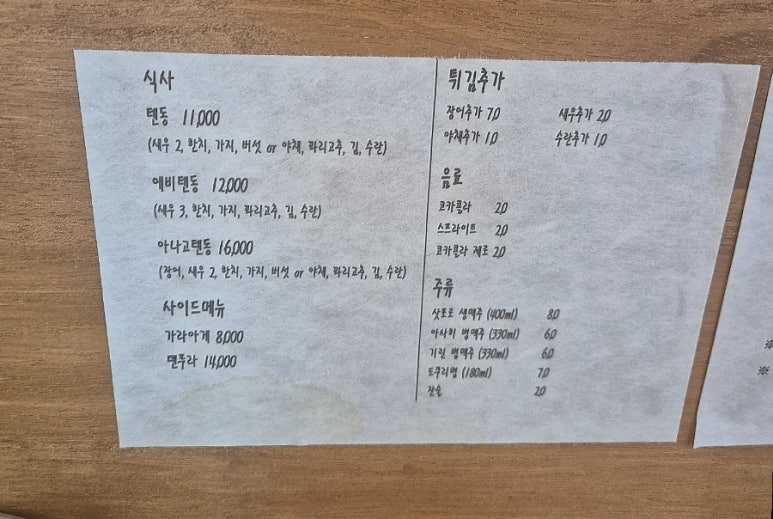 식사
텐동 11,000
(새우 2, 한치, 가지, 버섯 or 야채, 꽈리고추, 김, 수란)
에비텐동 12,000
(새우 3, 한치, 가지, 꽈리고추, 김, 수란)
아나고텐동 16,000
(장어, 새우 2, 한치, 가지, 버섯 or 야채, 꽈리고추, 김, 수란)
사이드메뉴
가라아게 8,000
덴푸라 14,000
튀김추가
장어추가 7.0 새우추가 2.0
야채추가 1.0 수란추가 1.0
음료
코카콜라 2.0
스프라이트 2.0
코카콜라 제로 2.0
주류
삿포로 생맥주 (400ml) 8.0
아사히 병맥주 (330ml) 6.0
기린 병맥주 (330ml) 6.0
도쿠리병 (180ml) 7.0
잔술 2.0
※
※